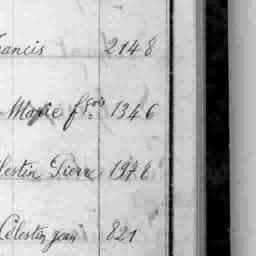 rancis 2148
Marie fçois 1346
lestin Pierre 1976
Célestin jean 821